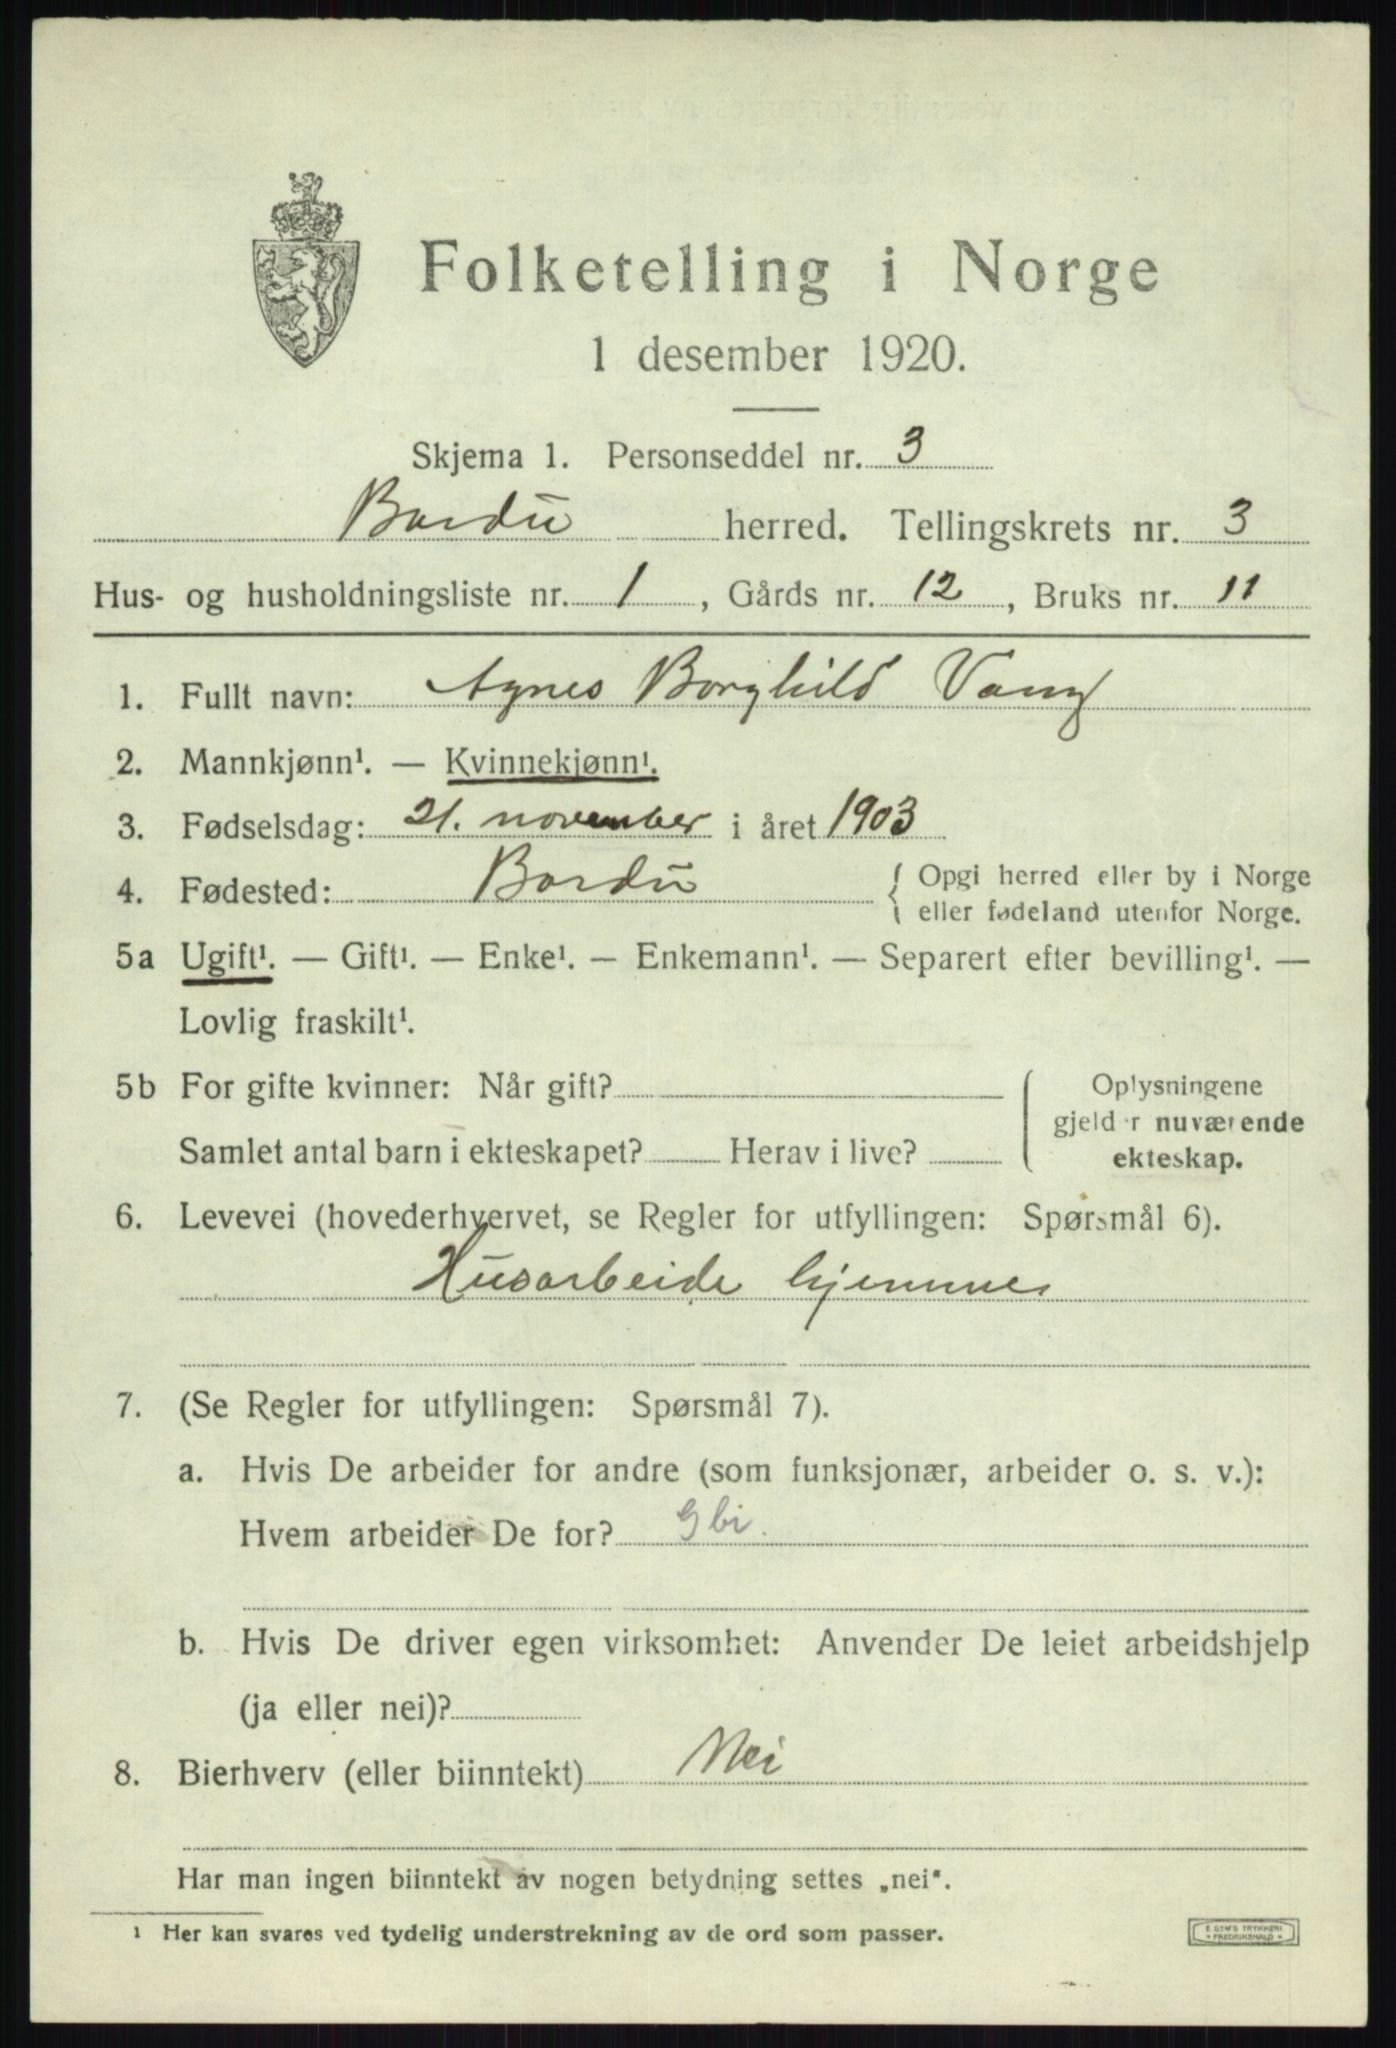 Folketelling i Norge
1 desember 1920.
Skjema 1. Personseddel nr. 3
Bardu herred. Tellingskrets nr. 3
Hus- og husholdningsliste nr. 1, Gårds nr. 12, Bruks nr. 11
1. Fullt navn: Agnes Borghild Vang
2. Mannkjønn¹. — Kvinnekjønn¹.
3. Fødselsdag: 21. november i året 1903
4. Fødested: Bardu { Opgi herred eller by i Norge
eller fødeland utenfor Norge.
5a Ugift¹. — Gift¹. — Enke¹. — Enkemann¹. — Separert efter bevilling¹. —
Lovlig fraskilt¹.
5b For gifte kvinner: Når gift? { Oplysningene
gjelder nuværende
Samlet antal barn i ekteskapet? Herav i live? ekteskap.
6. Levevei (hovederhvervet, se Regler for utfyllingen: Spørsmål 6).
Husarbeide hjemme
7. (Se Regler for utfyllingen: Spørsmål 7).
a. Hvis De arbeider for andre (som funksjonær, arbeider o. s. v.):
Hvem arbeider De for? Gbr.
b. Hvis De driver egen virksomhet: Anvender De leiet arbeidshjelp
(ja eller nei)?
8. Bierhverv (eller biinntekt) Nei
Har man ingen biinntekt av nogen betydning settes „nei".
¹ Her kan svares ved tydelig understrekning av de ord som passer.
E. GEM'S TRYKKERI
* FREDRIKSHALD *